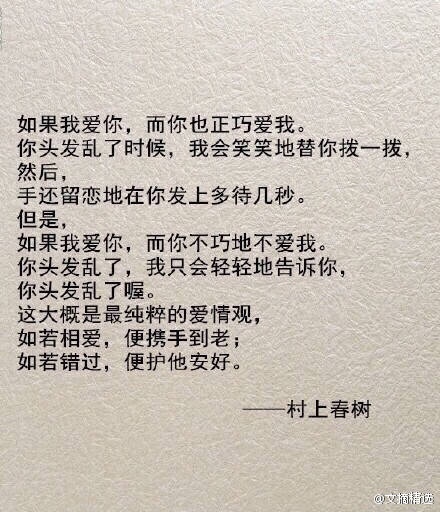 如果我爱你，而你也正巧爱我。
你头发乱了时候，我会笑笑地替你拨一拨，
然后，
手还留恋地在你发上多待几秒。
但是，
如果我爱你，而你不巧地不爱我。
你头发乱了，我只会轻轻地告诉你，
你头发乱了喔。
这大概是最纯粹的爱情观，
如若相爱，便携手到老；
如若错过，便护他安好。
——村上春树
@文摘精选